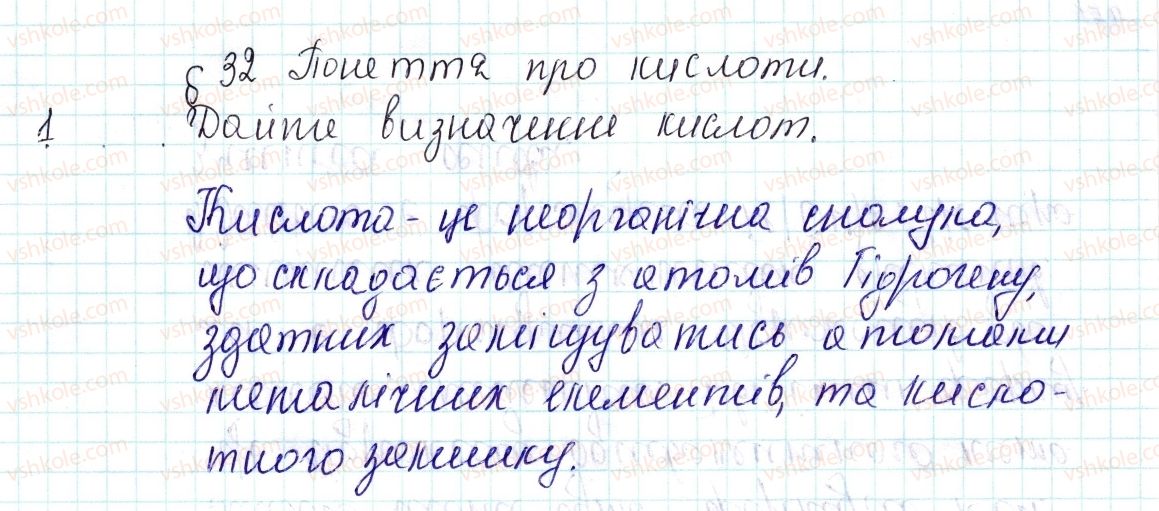 § 32 Поняття про кислоти.
1. Дайте визначення кислот.
Кислота - це неорганічна сполука,
що складається з атомів Гідрогену,
здатних заміщуватись атомами
металічних елементів, та кисло-
тного залишку.
vshkole.com